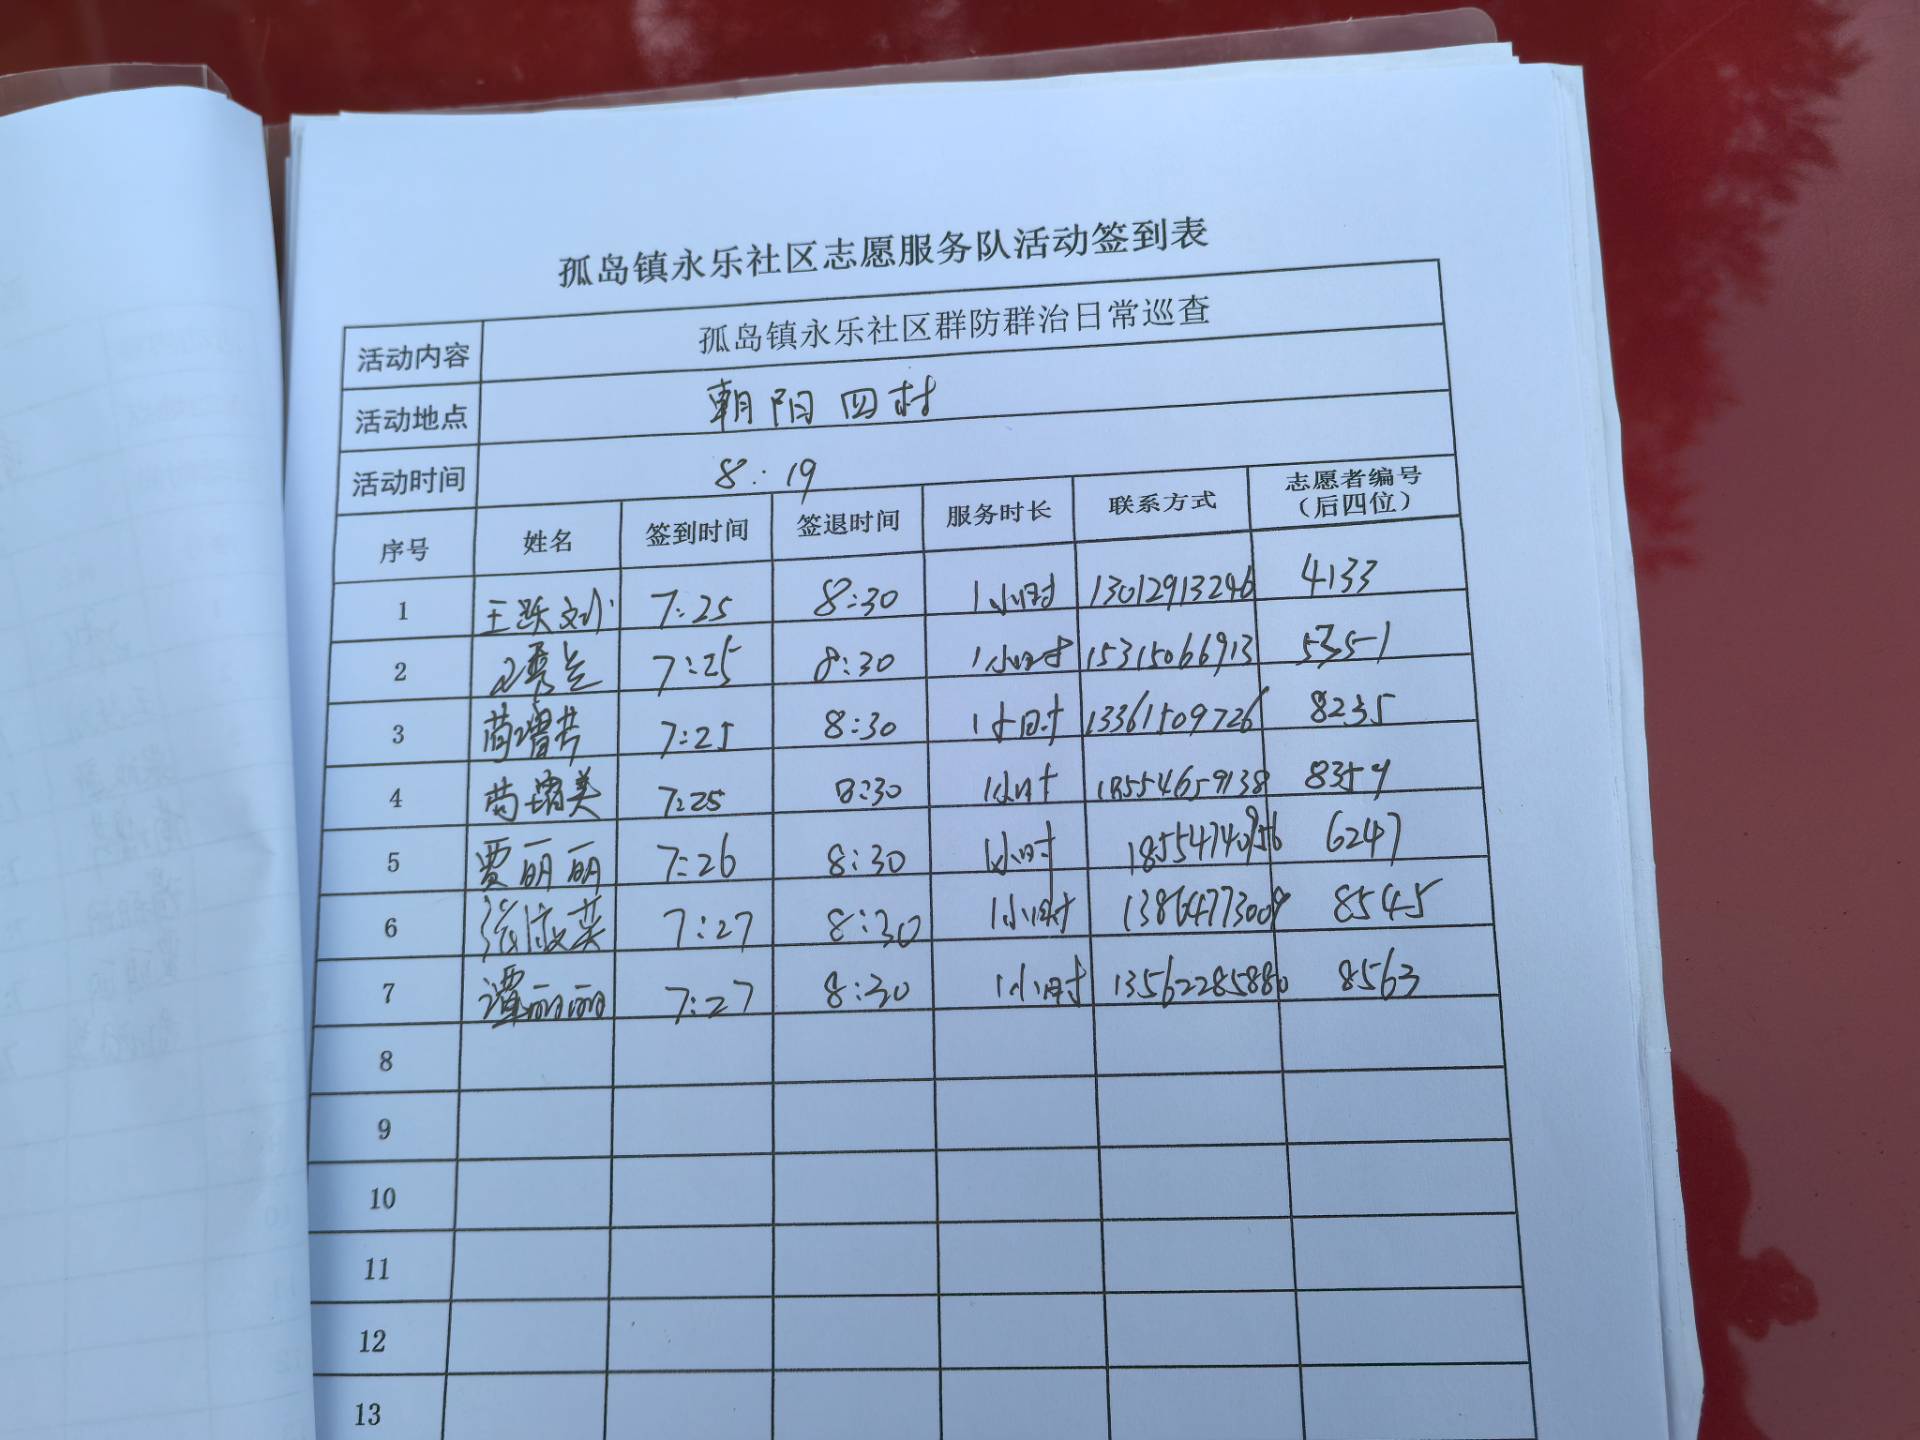 孤岛镇永乐社区志愿服务队活动签到表
活动内容 孤岛镇永乐社区群防群治日常巡查
活动地点 朝阳四村
活动时间 8:19
序号 姓名 签到时间 签退时间 服务时长 联系方式 志愿者编号（后四位）
1 王跃 7:25 8:30 1小时 13012913246 4133
2 7:25 8:30 1小时 15315066913 5351
3 7:25 8:30 1小时 13361509726 8235
4 7:25 8:30 1小时 18554659138 8359
5 贾丽丽 7:26 8:30 1小时 18554740956 6247
6 张淑英 7:27 8:30 1小时 13864773009 8545
7 谭丽丽 7:27 8:30 1小时 13562285880 8563
8
9
10
11
12
13